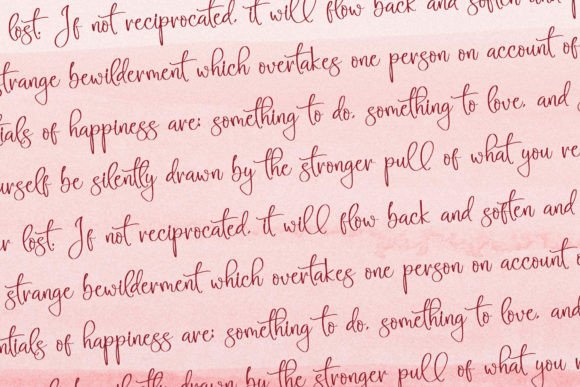 lost. If not reciprocated, it will flow back and soften and p
strange bewilderment which overtakes one person on account of
ntials of happiness are: something to do, something to love, and
urself be silently drawn by the stronger pull of what you re
r lost. If not reciprocated, it will flow back and soften and
strange bewilderment which overtakes one person on account o
ntials of happiness are: something to do, something to love, and
be silently drawn by the stronger pull of what you